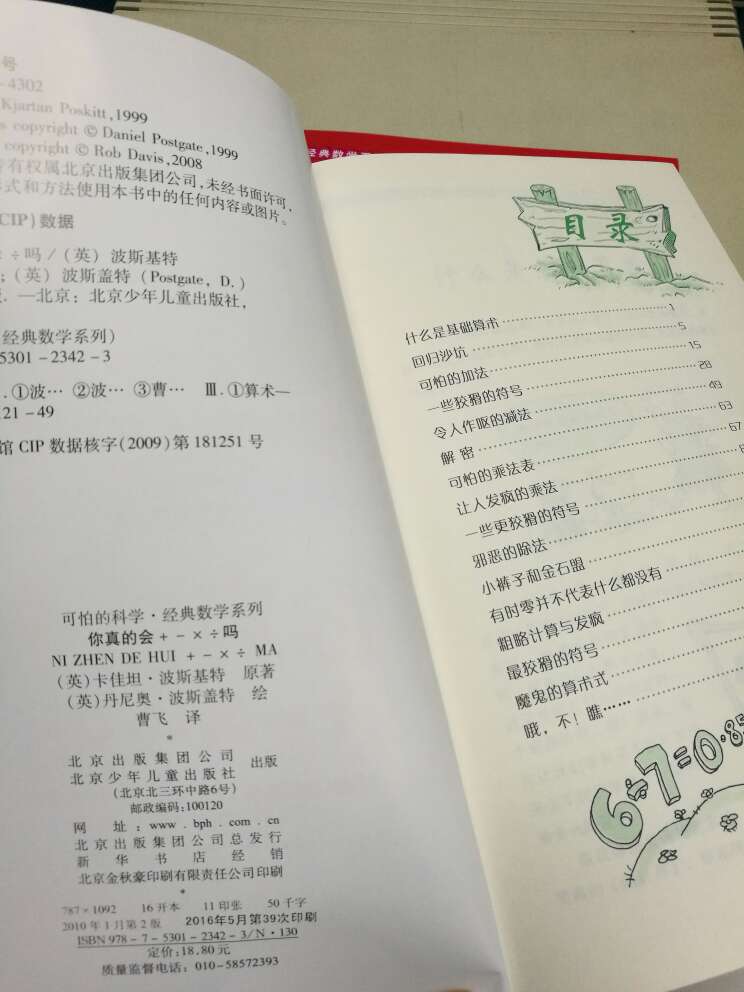 号
-4302
Kjartan Poskitt,1999
s copyright © Daniel Postgate,1999
copyright © Rob Davis,2008
有权属北京出版集团公司,未经书面许可,
式和方法使用本书中的任何内容或图片。
CIP)数据
÷吗/(英)波斯基特
;(英)波斯盖特(Postgate, D.)
. —北京:北京少年儿童出版社,
经典数学系列)
5301-2342-3
.①波… ②波… ③曹… Ⅲ.①算术—
21-49
馆CIP数据核字(2009)第181251号
可怕的科学·经典数学系列
你真的会+-×÷吗
NI ZHEN DE HUI + - × ÷ MA
(英)卡佳坦·波斯基特 原著
(英)丹尼奥·波斯盖特 绘
曹飞 译
*
北京出版集团公司
北京少年儿童出版社
出版
(北京北三环中路6号)
邮政编码:100120
网 址:www.bph.com.cn
北京出版集团公司总发行
新华书店经销
北京金秋豪印刷有限责任公司印刷
*
787×1092 16开本 11印张 50千字
2010年1月第2版 2016年5月第39次印刷
ISBN 978-7-5301-2342-3/N·130
定价:18.80元
质量监督电话:010-58572393
经典数学
目录
什么是基础算术……1
回归沙坑……5
可怕的加法……15
一些狡猾的符号……28
令人作呕的减法……49
解密……63
可怕的乘法表……67
让人发疯的乘法……
一些更狡猾的符号……
邪恶的除法……
小裤子和金石盟……
有时零并不代表什么都没有……
粗略计算与发疯……
最狡猾的符号……
魔鬼的算术式……
哦,不!瞧……
6÷7=0.85